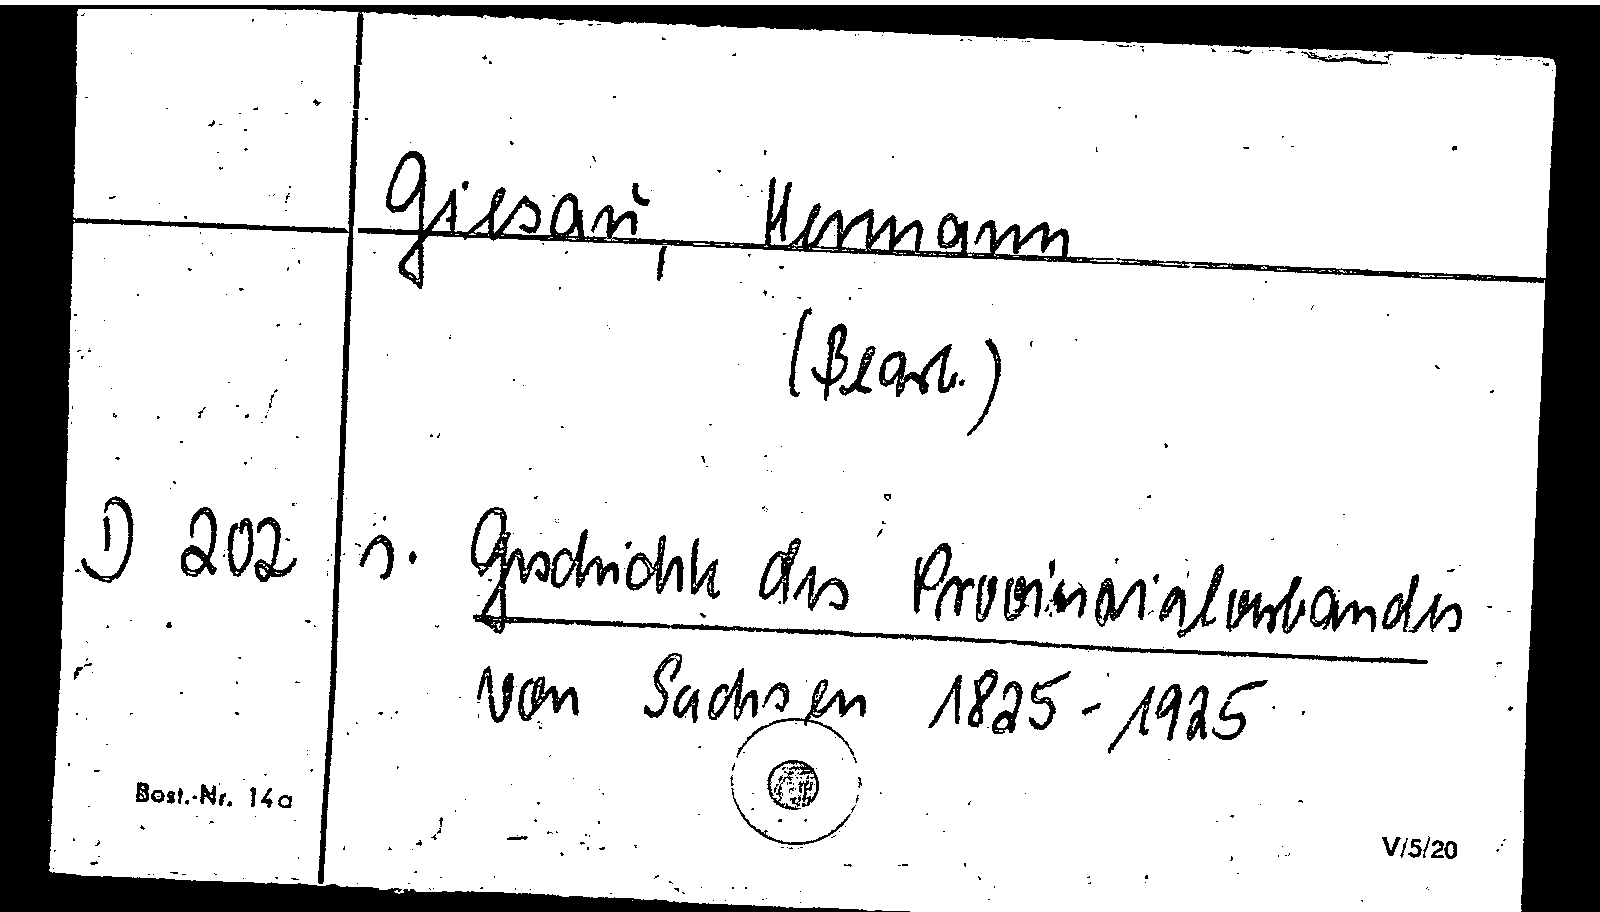 Giesau, Hermann
(Bearb.)
D 202 s. Geschichte des Provinzialverbandes
von Sachsen 1825-1925
Best.-Nr. 14a
V/5/20